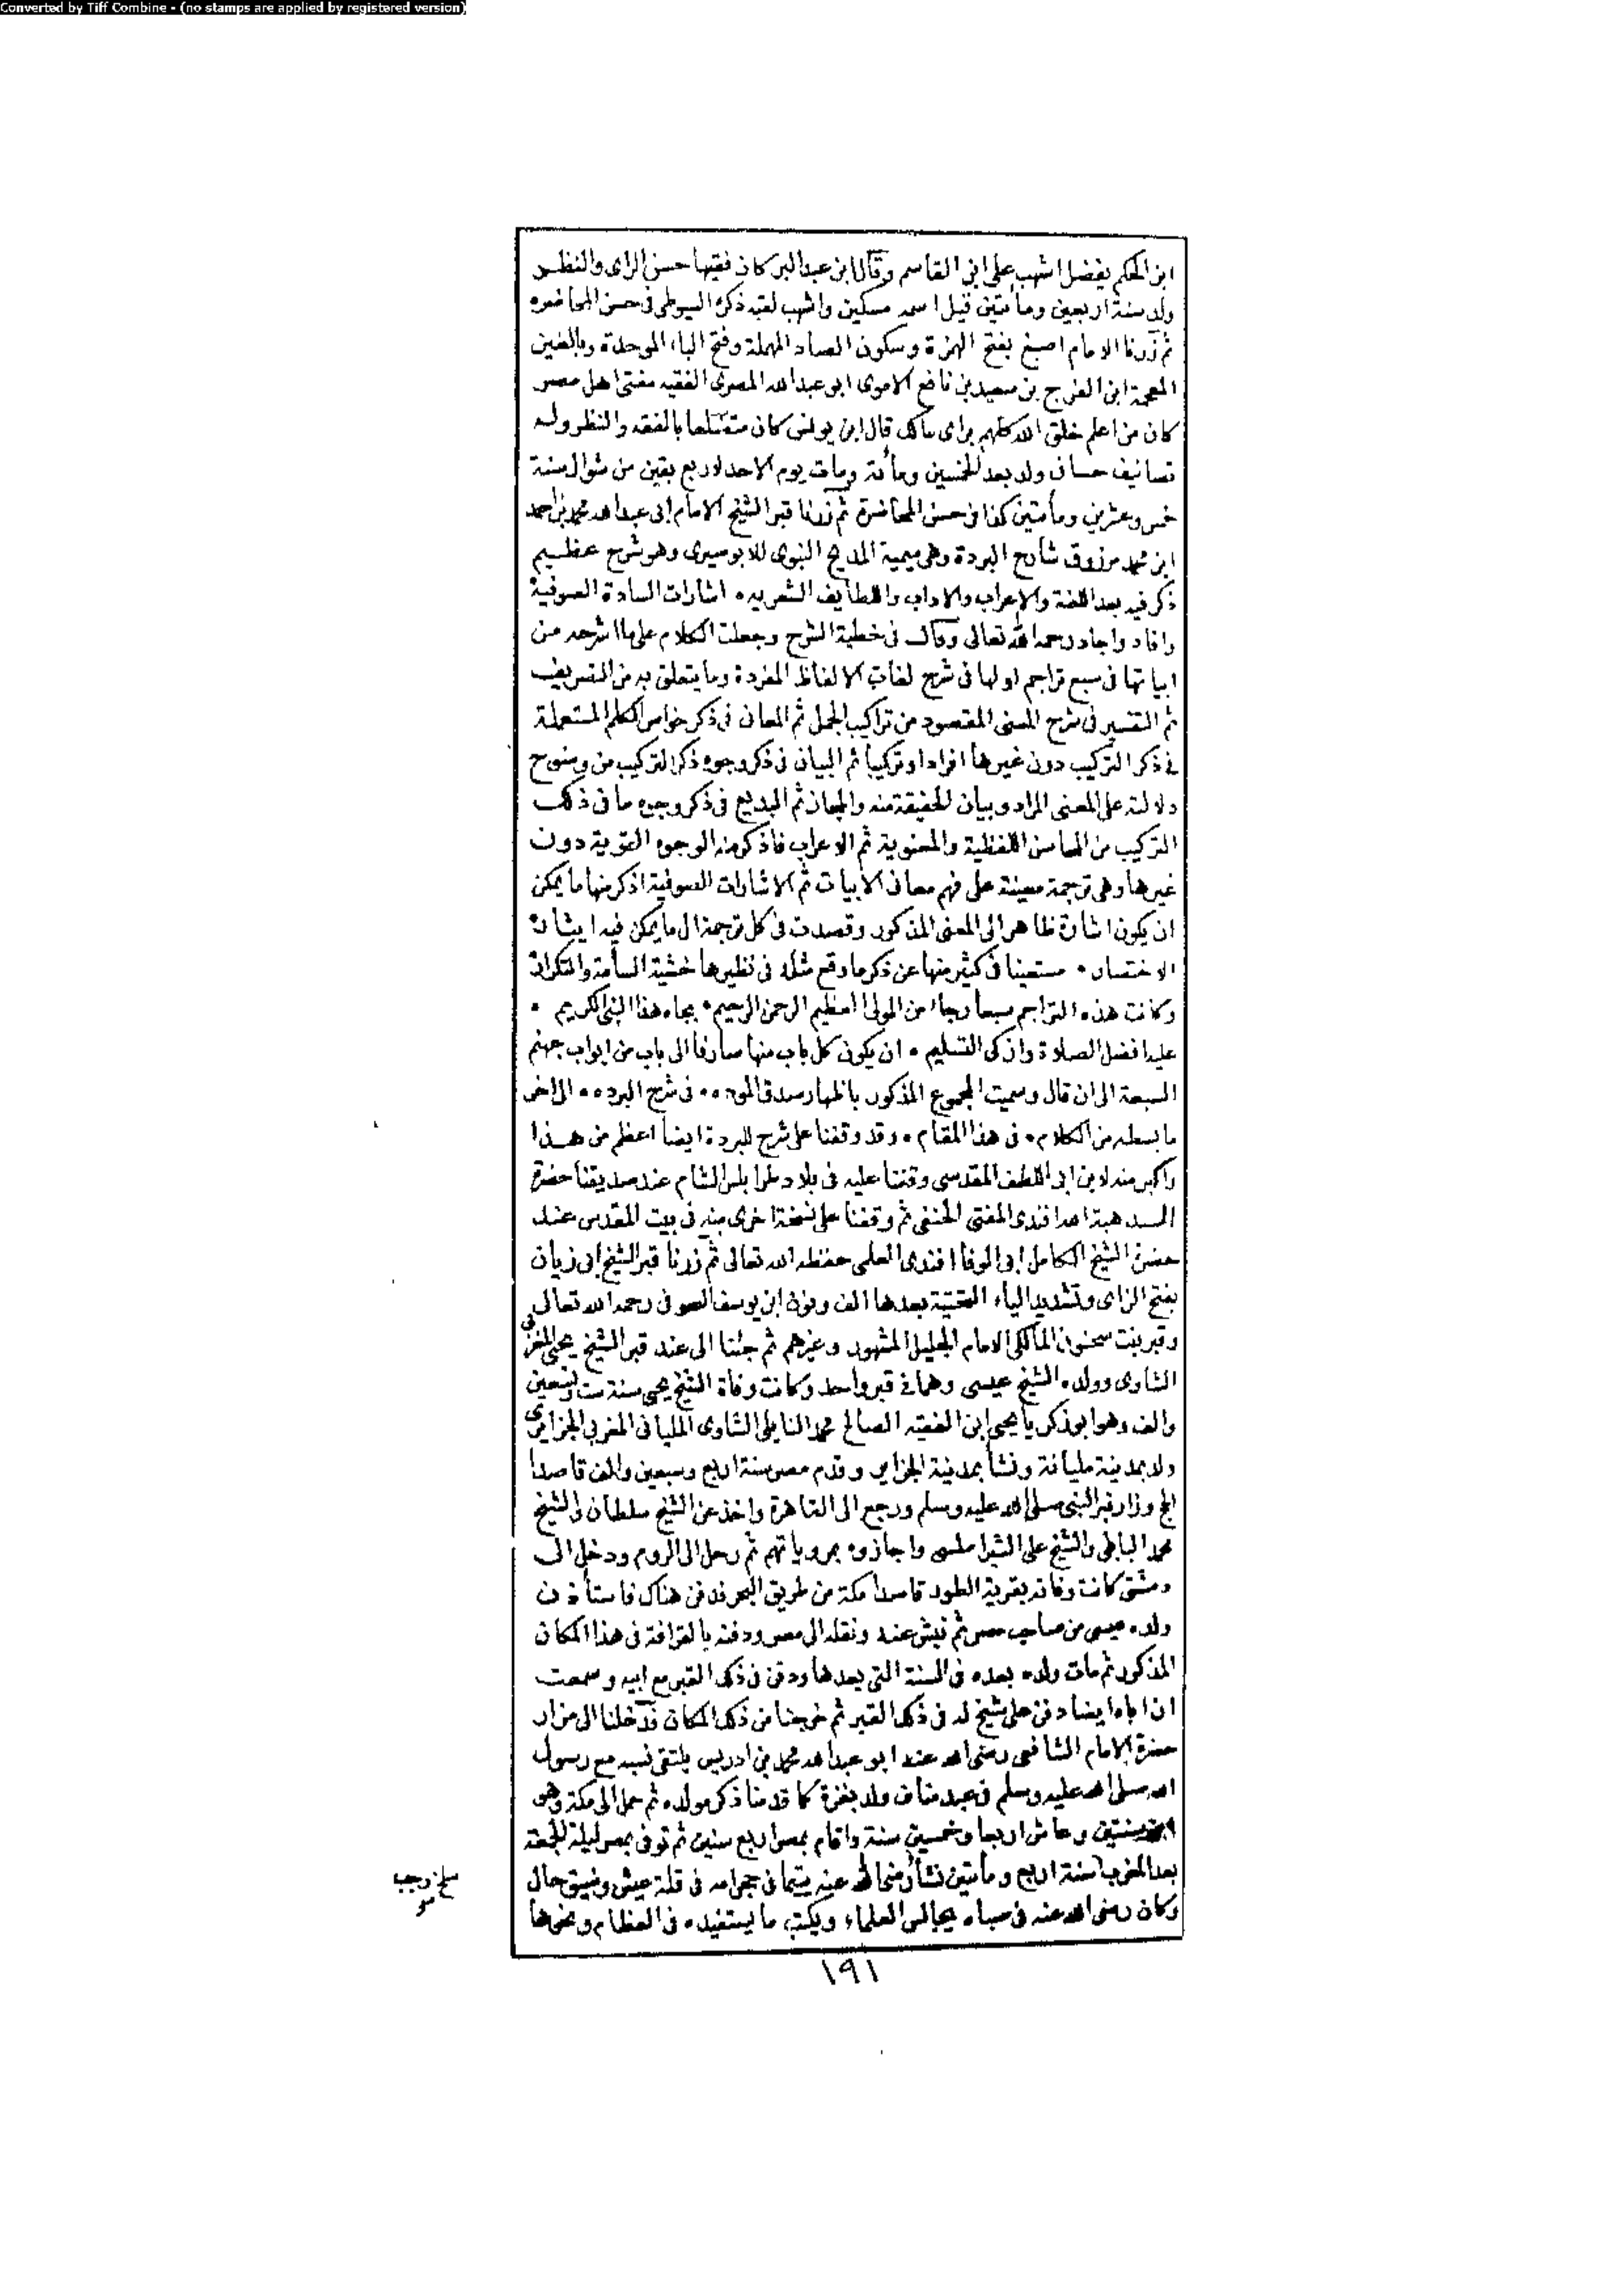 Converted by Tiff Combine - (no stamps are applied by registered version)
ابن الحكم يفضل اشهب على ابن القاسم وقال ابن عبد البر كان فقيها حسن الراى والنظر
ولد سنة اربعين ومأتين قيل اسمه مسكين واشهب لقبه ذكره السيوطى فى حسن المحاضره
ثم زرنا الامام اصبغ بفتح الهمزة وسكون الصاد المهملة وفتح الباء الموحدة وبالغين
المعجمة ابن الفرج بن سعيد بن نافع الاموى ابو عبد الله المصرى الفقيه مفتى اهل مصر
كان من اعلم خلق الله كلهم براى مالك قال ابن يونس كان متضلعا بالفقه والنظر وله
تصانيف حسان ولد بعد الخمسين ومأئة ومات يوم الاحد لاربع بقين من شوال سنة
خمس وعشرين ومأتين كذا فى حسن المحاضرة ثم زرنا قبر الشيخ الامام ابى عبد الله محمد بن احمد
ابن محمد مرزوق شارح البردة وهى ميمية المديح النبوى للابوصيرى وهو شرح عظيم
ذكر فيه بعد اللغة والاعراب والاداب واللطايف الشعريه • اشارات السادة الصوفية
وافاد واجاد رحمه الله تعالى وقال فى خطبة الشرح وجعلت الكلام على ما اشرحه من
ابياتها فى سبع تراجم اولها فى شرح لغات الالفاظ المفردة وما يتعلق به من التصريف
ثم التفسير فى شرح المعنى المقصود من تراكيب الجمل ثم المعانى فى ذكر خواص الكلم المستعملة
فى ذكر التركيب دون غيرها افرادا وتركيبا ثم البيان فى ذكر وجوه ذكر التركيب من وضوح
دلالته على المعنى المراد وبيان الحقيقة منه والمجاز ثم البديع فى ذكر وجوه ما فى ذلك
التركيب من المحاسن اللفظية والمعنوية ثم الاعراب فاذكر منه الوجوه القوية دون
غيرها وهى ترجمة معينة على فهم معانى الابيات ثم الاشارات الصوفية اذكر منها ما يمكن
ان يكون اشارة ظاهر الى المعنى المذكور وقصدت فى كل ترجمة الى ما يمكن فيه ايثارة
الاختصار • مستغنيا فى كثير منها عن ذكر ما وقع مثله فى نظيرها خشية السأمة والتكرار
وكانت هذه التراجم سبعا رجاء من المولى العظيم الرحمن الرحيم • بجاه هذا النبى الكريم •
عليه افضل الصلاة وازكى التسليم • ان يكون كل باب منها صارفا الى باب من ابواب جهنم
السبعة الى ان قال وسميت المجموع المذكور باظهار صدق الموده • • فى شرح البرده • • الى اخر
ما بسطه من الكلام • فى هذا المقام • وقد وقفنا على شرح للبردة ايضا اعظم من هذا
واكبر منه لابن ابى اللطف المقدسى وقفنا عليه فى بلاد طرابلس الشام عند صديقنا حضرة
السيد هبة الله افندى المفتى الحنفى ثم وقفنا على نسخة اخرى منه فى بيت المقدس عند
حضرة الشيخ الكامل ابى الوفا افندى العلمى حفظه الله تعالى ثم زرنا قبر الشيخ ابى زيان
بفتح الزاى وتشديد الياء التحتية بعدها الف ونون ابن يوسف الصوفى رحمه الله تعالى
وقبر بنت سحنون المالكى الامام الجليل المشهور وغيرهم ثم جئنا الى عند قبر الشيخ يحيى المغربى
الشاوى وولده الشيخ عيسى وهما فى قبر واحد وكانت وفاة الشيخ يحيى سنة ست وتسعين
والف وهو ابو زكريا يحيى ابن الفقيه الصالح محمد النايلى الشاوى المليانى المغربى الجزايرى
ولد بمدينة مليانة ونشأ بمدينة الجزاير وقدم مصر سنة اربع وسبعين والف قاصدا
الحج وزار قبر النبى صلى الله عليه وسلم ورجع الى القاهرة واخذ عن الشيخ سلطان والشيخ
محمد البابلى والشيخ على الشبراملسى واجازوه بمروياتهم ثم رحل الى الروم ودخل الى
دمشق كانت وفاته بقرية الطور قاصدا مكة من طريق البحر فدفن هناك فاستأذن
ولده عيسى من صاحب مصر ثم نبش عنه ونقله الى مصر ودفنه بالقرافة فى هذا المكان
المذكور ثم مات ولده بعده فى السنة التى بعدها ودفن فى ذلك القبر مع ابيه وسمعت
ان اباه ايضا دفن على شيخ له فى ذلك القبر ثم خرجنا من ذلك المكان فدخلنا الى مزار
حضرة الامام الشافعى رضى الله عنه ابو عبد الله محمد بن ادريس يلتقى نسبه مع رسول
الله صلى الله عليه وسلم فى عبد مناف ولد بغزة كما قدمنا ذكر مولده ثم حمل الى مكة وهو
ابن سنتين وعاش اربعا وخمسين سنة واقام بمصر اربع سنين ثم توفى بمصر ليلة الجمعة
بعد المغرب سنة اربع ومأتين نشأ رضى الله عنه يتيما فى حجر امه فى قلة عيش وضيق حال
وكان رضى الله عنه فى صباه يجالس العلماء ويكتب ما يستفيده فى العظام ونحوها
سلخ رجب
١٩١